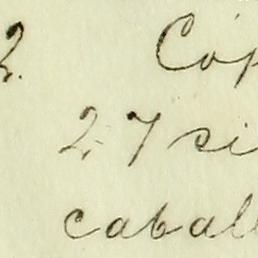 2. Cóp
27 si
caball